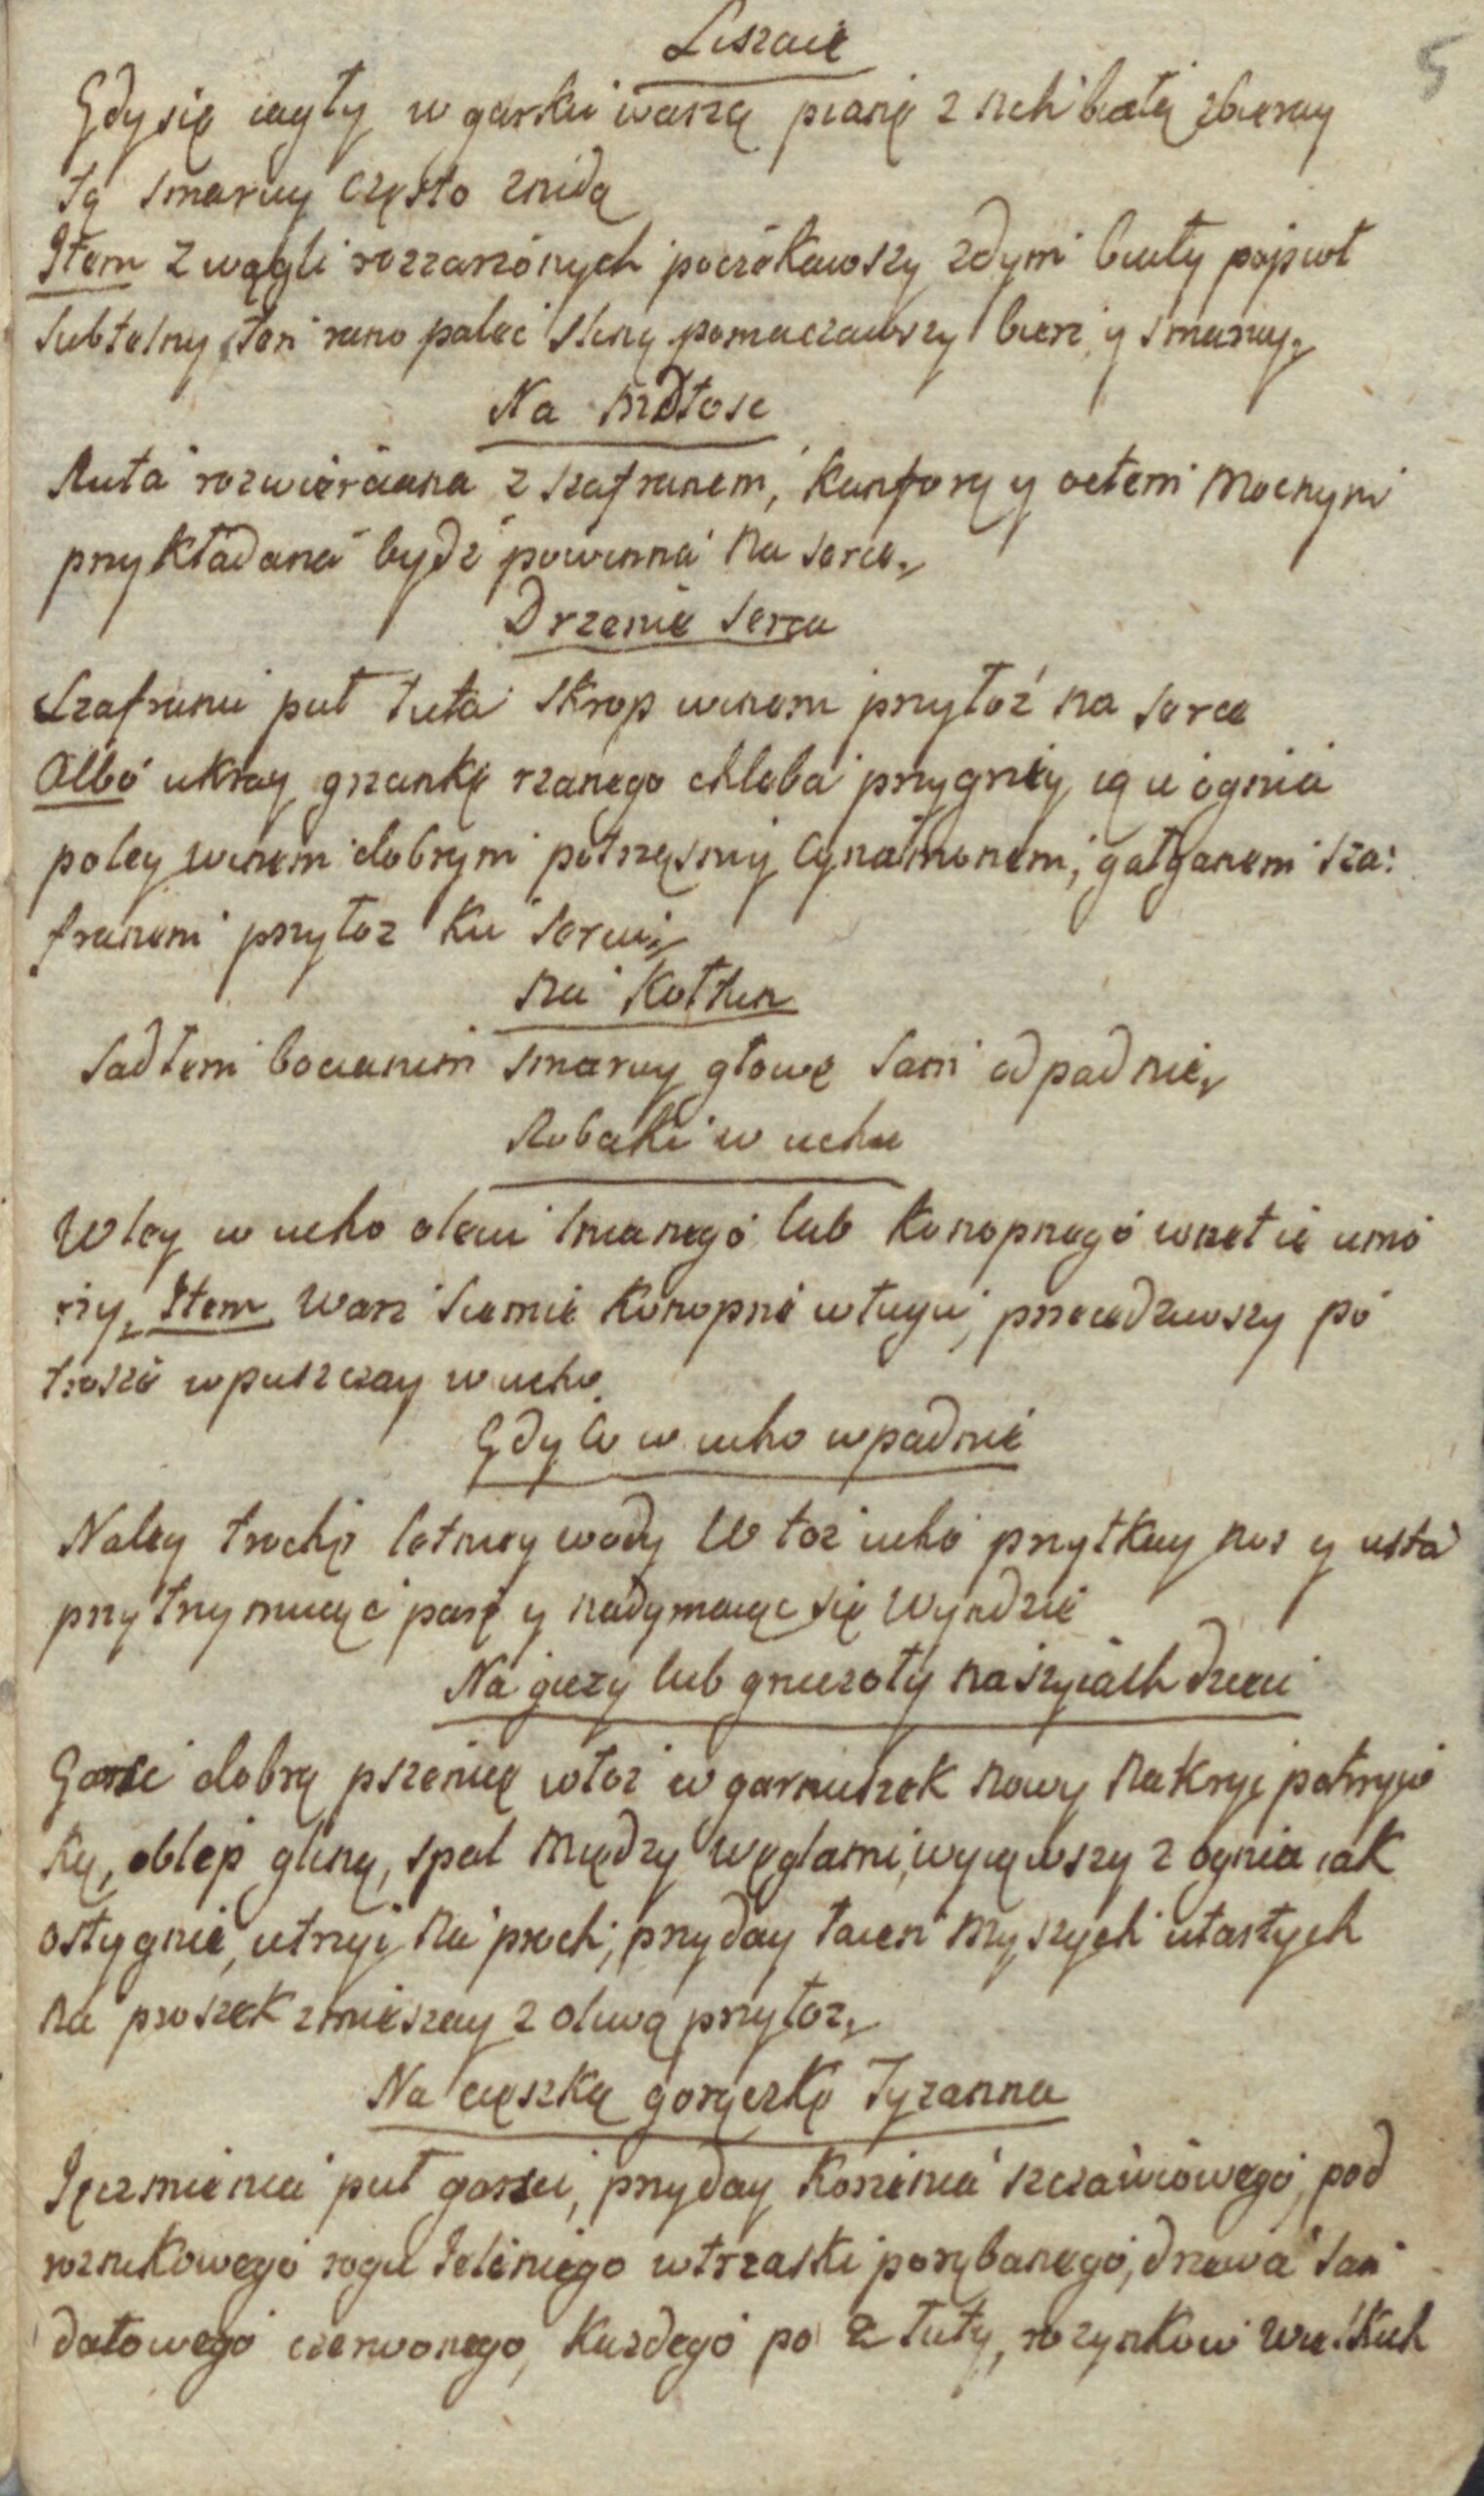 Liszaie
5
Gdy się iagły w garku warzą pianę z nich białą zbieray
tą smaruy często znidą
Item z węgli rozzarzonych poczekawszy zdymi biały popioł
subtelny ten rano palec sliną pomaczawszy bierz y smaruy.
Na Mdłosc
Ruta rozwierciana z szafranem, kanforą y octem mocnym
przykładana bydz powinna na serce.
Drzenie serca
Szafranu puł łuta skrop winem przyłoż na serce
Albo ukray grzankę rzanego chleba przygrzey ią u ognia
poley winem dobrym potrząsniy Cynamonem, gałganem sza:
franem przyłoz ku sercu.
Na Kołtun
Sadłem bocianim smaruy głowę sam odpadnie.
Robaki w uchu
Wley w ucho oleiu lnianego lub konopnego wnet ie umo
rzy. Item warz siemie konopne w ługu, przecedziwszy po
trosze wpuszczay w ucho.
Gdy Co w ucho wpadnie
Naley trochę letniey wody w toz ucho przytkay nos y usta
przytrzymuiąc parę y nadymaiąc się wynidzie
Na guzy lub gruczoły na szyiach dzieci
Garsc dobrą pszenicę włoz w garnuszek nowy nakryi pokryw
ką, oblep gliną, spal między węglami, wyiąwszy z ognia iak
ostygnie, utrzyi na proch, przyday łaien myszych utartych
na proszek zmieszay z oliwą przyłoz.
Na cięszką gorączkę Tyzanna
Jęczmienia puł garsci, przyday korzenia szczawiowego, pod
roznikowego rogu Jeleniego w trzaski porąbanego, drzewa san
dałowego czerwonego, kazdego po 2 łuty, rozynkow wielkich